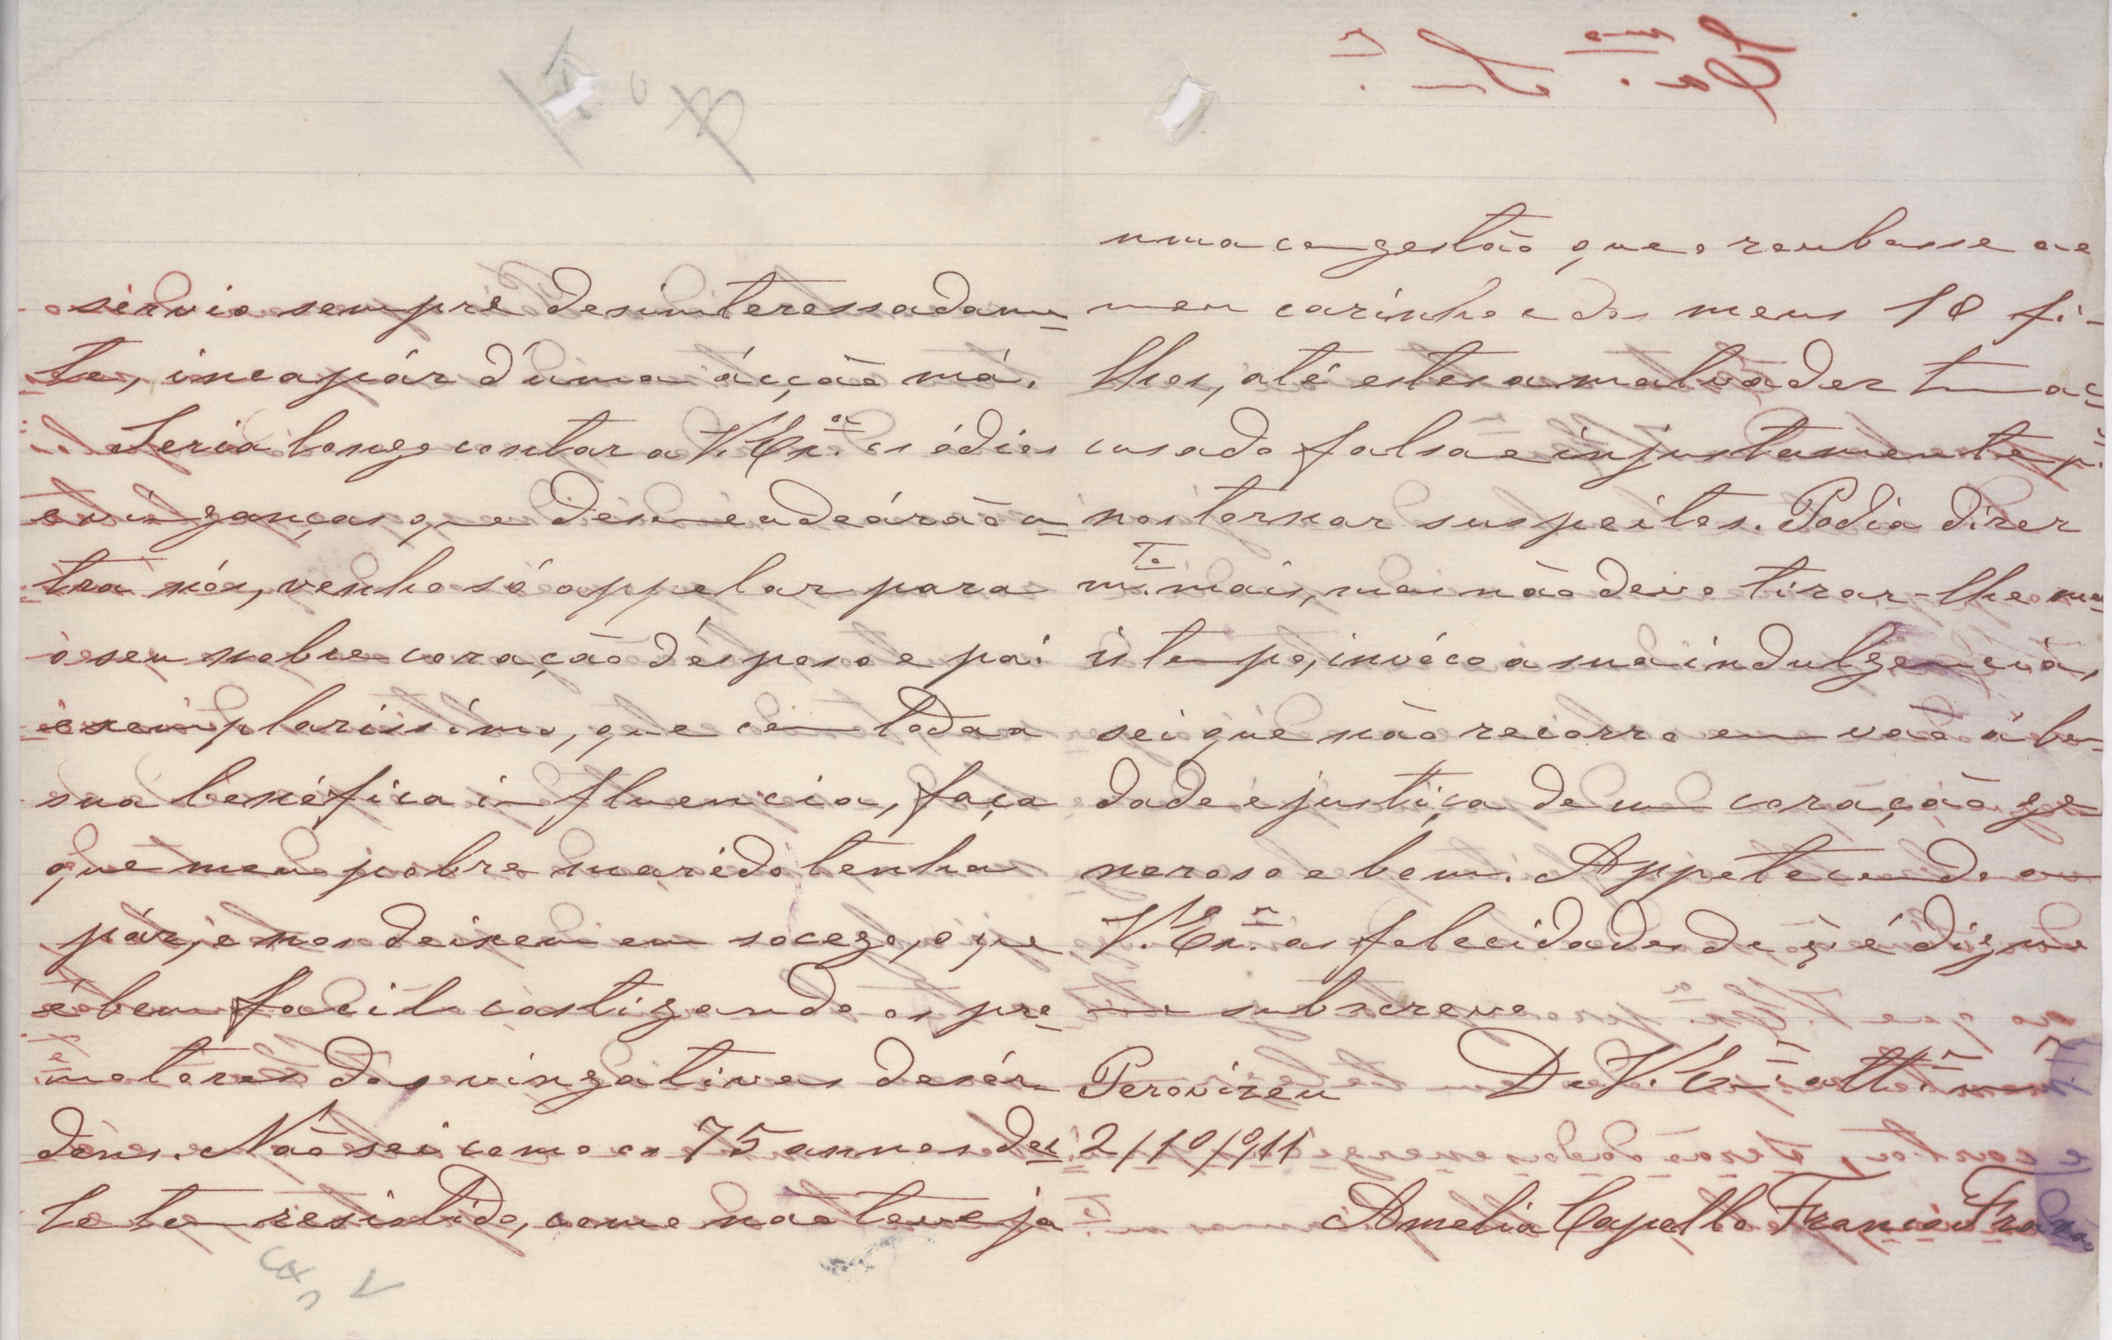 servio sempre desinteressadamen
te, incapáz d'uma ácção má.
Seria longo contar a V. Ex.ª os ódios
e vinganças que desencadeárão con
tra nós, venho só appelar para
o seu nobre coração d'esposo e pai
exemplarissimo, que com toda a
sua benéfica influencia, faça
que meu pobre marido tenha
páz, e nos deixem em socego, o que
é bem facil castigando os pro
motores das vingativas desór
dens. Não sei como os 75 annos des
te tem resistido, como não teve já
uma congestão que o roubasse ao
meu carinho e dos meus 10 fi-
lhos, até estes a malvadez tem ac
cusado falsa e injustamente p.ª
nos tornar suspeitos. Podia dizer
m.to mais, mas não devo tirar-lhe ma
is tempo, invóco a sua indulgencia,
sei que não recorro em vão á bon
dade e justiça de um coração ge
neroso e bom. Appetecendo a
V. Ex.ª as felecidades de q é digno
se subscreve
De V. Ex.ª att.ª
Perovizeu
2/10/911
Amelia Capello Franco Frazão